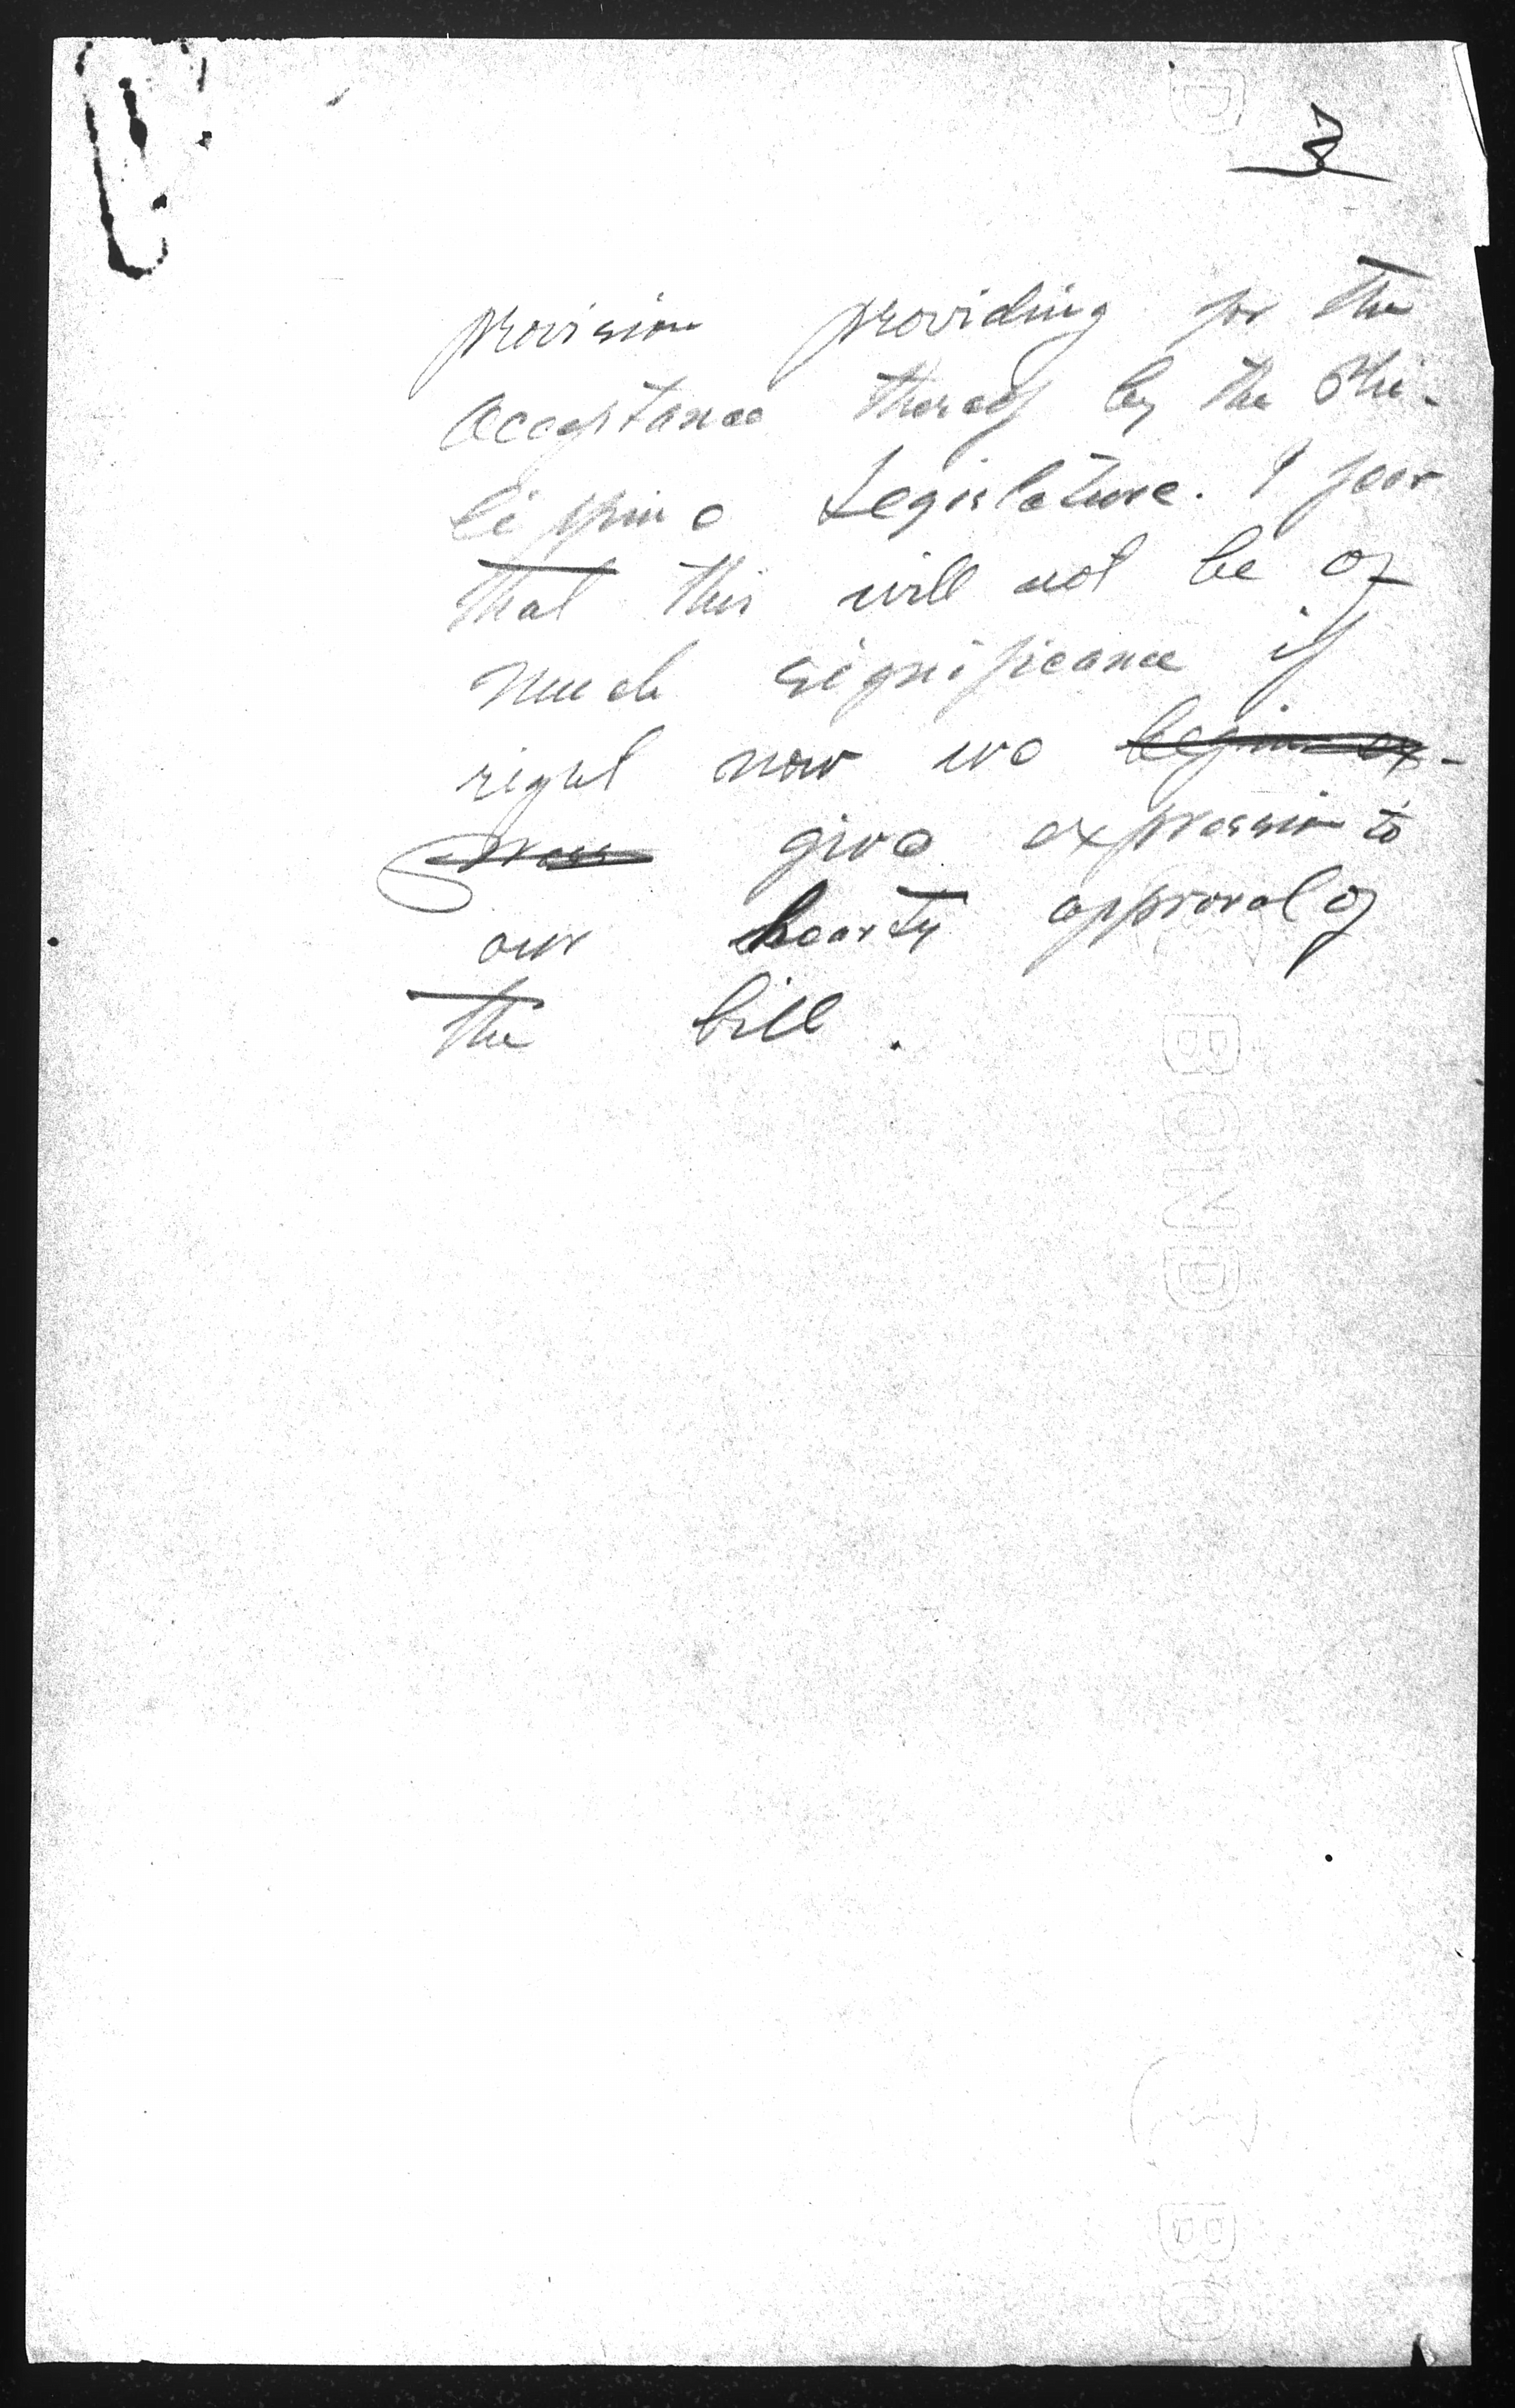 3
provision providing for the
acceptance thereof by the Phi-
lippine Legislature. I fear
that this will not be of
much significance if
right now we begin ex-
press give expression to
our hearty approval of
the bill.
BOND
BO